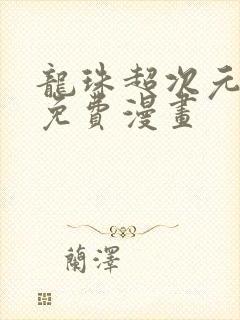 龍珠超次元
免費漫畫
蘭澤